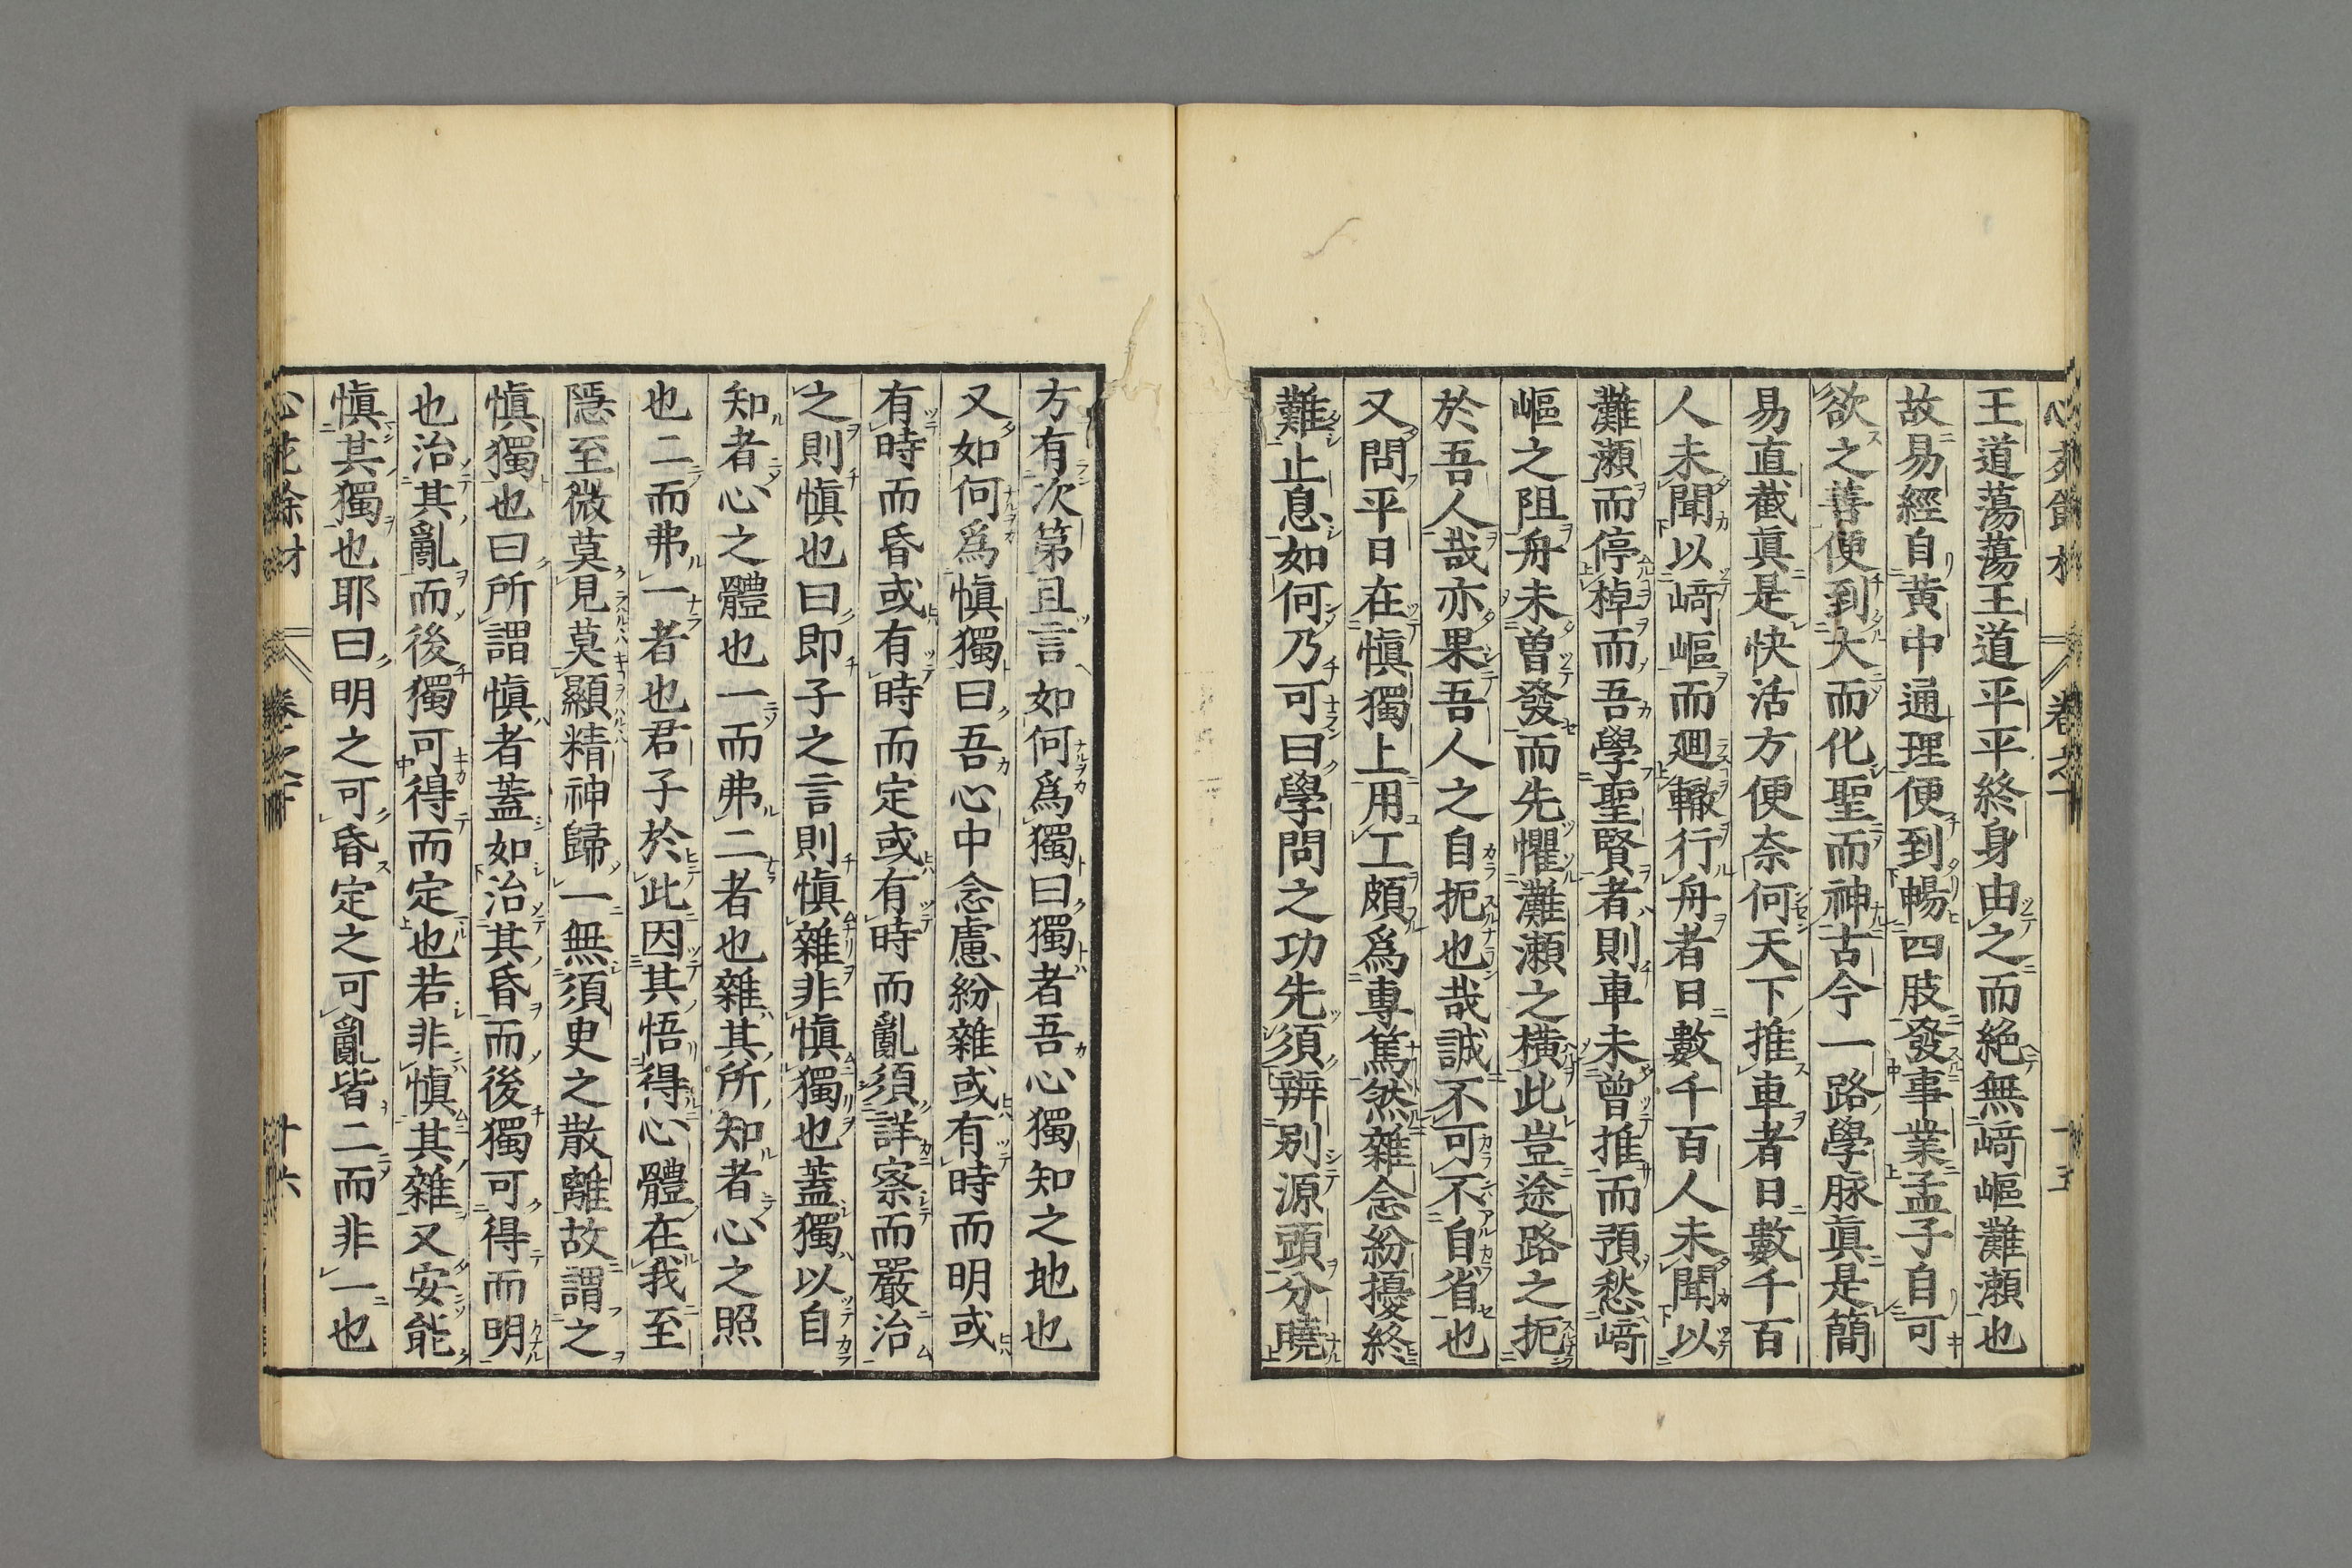 王道蕩蕩王道平平終身由之而絶無﨑嶇灘瀬也
故易經自黄中通理便到暢四肢發事業孟子自可
欲之善便到大而化聖而神古今一路學脉眞是簡
易直截眞是快活方便奈何天下推車者日數千百
人未聞以﨑嶇而廻轍行舟者日數千百人未聞以
灘瀬而停棹而吾學聖賢者則車未曾推而預愁﨑
嶇之阻舟未曾發而先懼灘瀬之横此豈途路之扼
於吾人哉亦果吾人之自扼也哉誠不可不自省也
又問平日在愼獨上用工頗爲專篤然雜念紛擾終
難止息如何乃可曰學問之功先須辨別源頭分曉
方有次第且言如何爲獨曰獨者吾心獨知之地也
又如何爲愼獨曰吾心中念慮紛雜或有時而明或
有時而昏或有時而定或有時而亂須詳察而嚴治
之則愼也曰即子之言則愼雜非愼獨也蓋獨以自
知者心之體也一而弗二者也雜其所知者心之照
也二而弗一者也君子於此因其悟得心體在我至
隱至微莫見莫顯精神歸一無須臾之散離故謂之
愼獨也曰所謂愼者蓋如治其昏而後獨可得而明
也治其亂而後獨可得而定也若非愼其雜又安能
愼其獨也耶曰明之可昏定之可亂皆二而非一也
餘材
十六